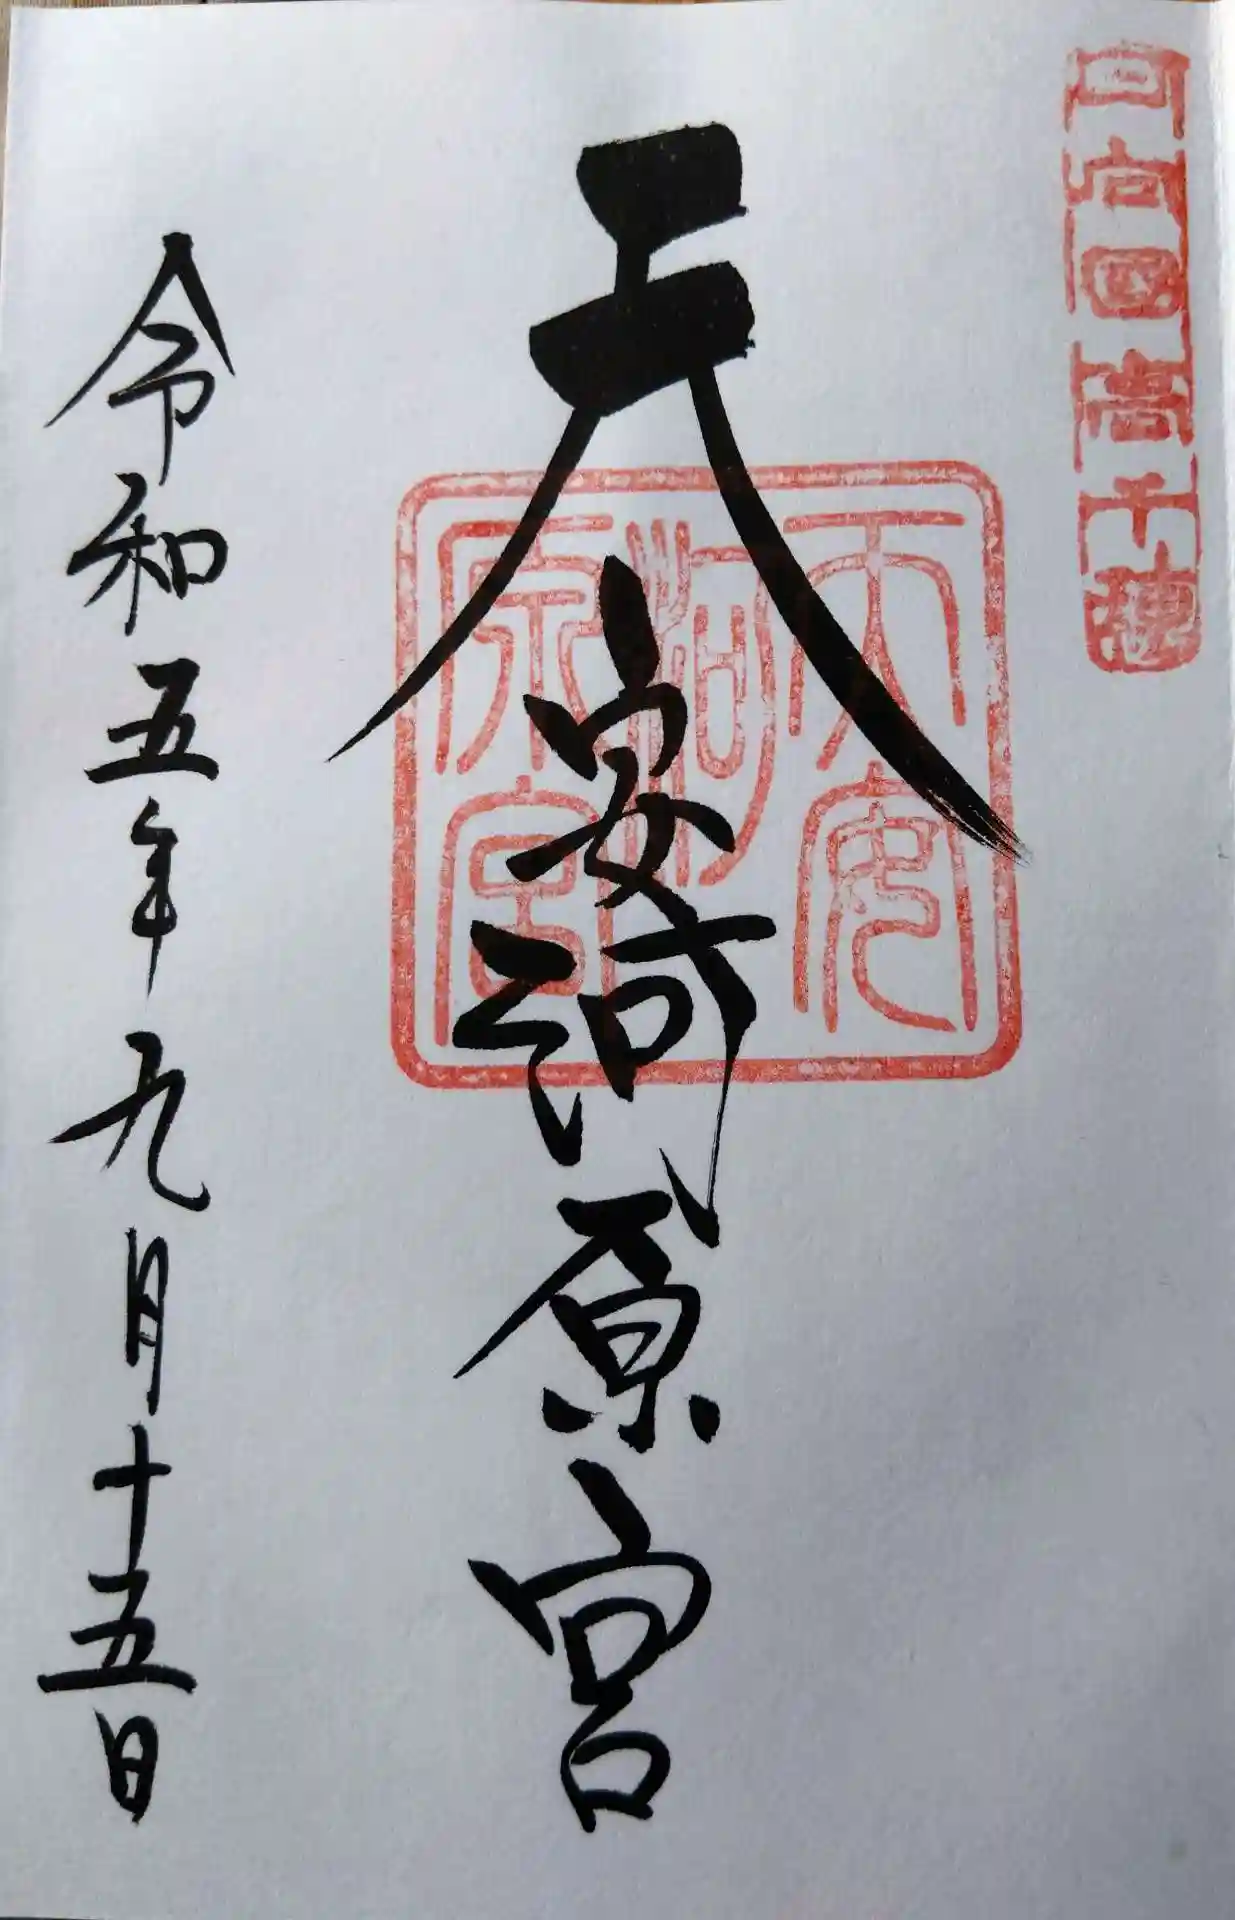 日向国高千穂
天安河原宮
天安河原宮
令和五年九月十五日